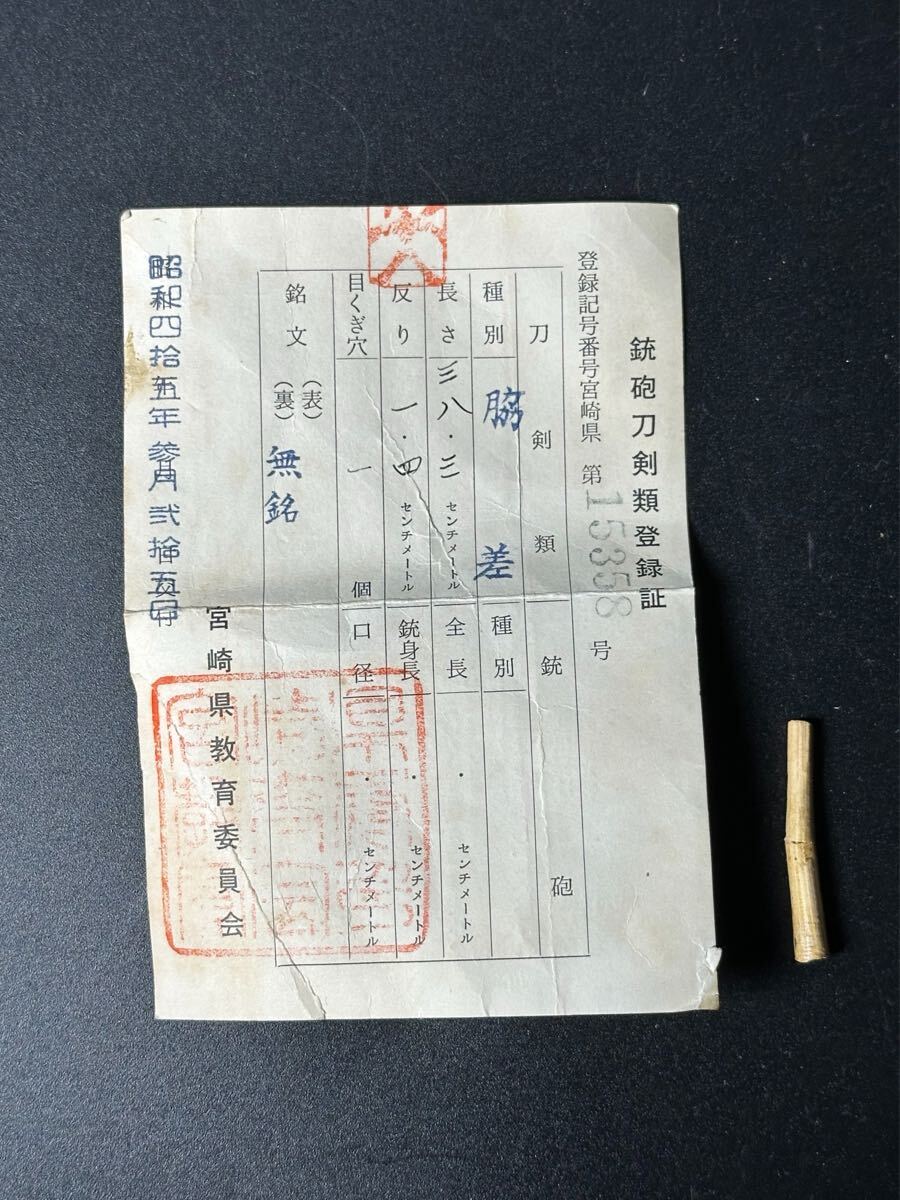 銃砲刀剣類登録証
登録記号番号宮崎県 第15358号
刀剣類
種別 脇差
長さ 三八・三 センチメートル
反り 一・四 センチメートル
目くぎ穴 一 個
銘文 (表) (裏) 無銘
銃砲
種別
全長 ・ センチメートル
銃身長 ・ センチメートル
口径 ・ センチメートル
宮崎県教育委員会
昭和四拾五年参月弐拾五日